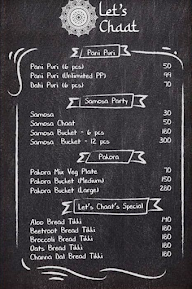 Let's
Chaat
Pani Puri
Pani Puri (6 pcs) 50
Pani Puri (Unlimited PP) 99
Dahi Puri (6 pcs) 70
Samosa Party
Samosa 30
Samosa Chaat 50
Samosa Bucket - 6 pcs 160
Samosa Bucket - 12 pcs 300
Pakora
Pakora Mix Veg Plate 70
Pakora Bucket (Medium) 150
Pakora Bucket (Large) 280
Let's Chaat's Special
Aloo Bread Tikki 140
Beetroot Bread Tikki 180
Broccoli Bread Tikki 180
Oats Bread Tikki 180
Channa Dal Bread Tikki 180